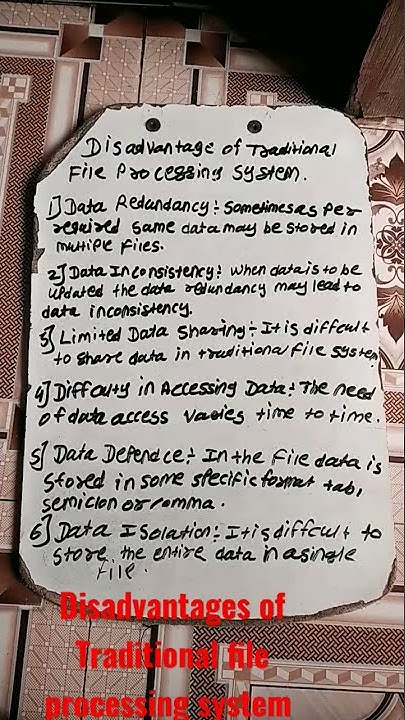 Disadvantage of Traditional
File Processing System.
1] Data Redundancy:- Sometimes as per
required same data may be stored in
multiple files.
2] Data Inconsistency:- When data is to be
updated the data redundancy may lead to
data inconsistency.
3] Limited Data Sharing:- It is difficult
to share data in traditional file system
4] Difficuty in Accessing Data:- The need
of data access varies time to time.
5] Data Defendce:- In the file data is
stored in some specific format tab,
semiclon or comma.
6] Data Isolation:- It is diffcult to
store the entire data in a single
file.
Disadvantages of
Traditional file
processing system